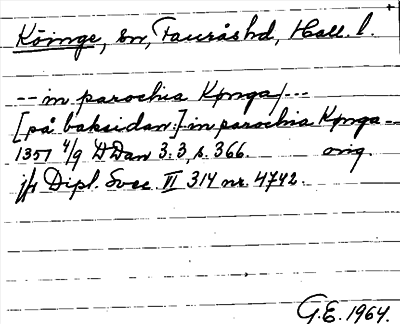 Köinge, sn, Faurås hd, Hall. l.
-- in parochia Kønga/---
[på baksidan:] in parochia Kønga --
1357 4/9 DDan 3:3, s. 366. orig.
jfr Dipl. Svec. VI 314 nr. 4742.
G.E. 1964.